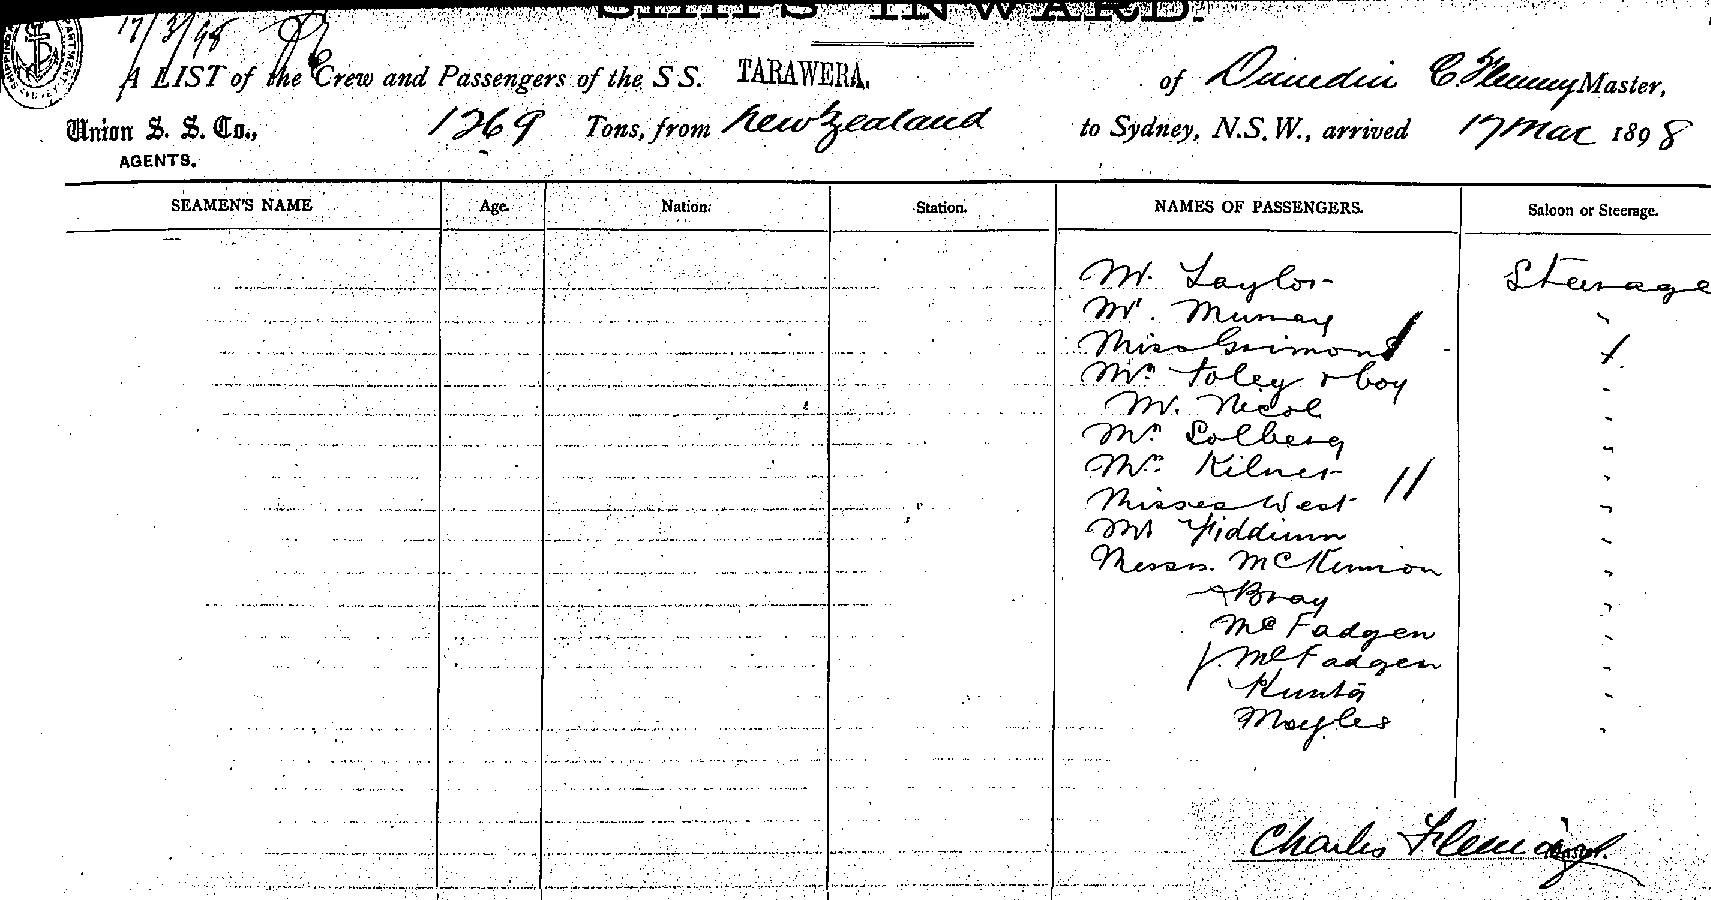 SHIPS INWARD.
17/3/98
A LIST of the Crew and Passengers of the S S. TARAWERA, of Dunedin C Fleming Master,
Union S. S. Co., 1269 Tons, from New Zealand to Sydney, N.S.W., arrived 17 Mar 1898
AGENTS.
SEAMEN'S NAME Age. Nation. Station. NAMES OF PASSENGERS. Saloon or Steerage.
Mr. Taylor Steerage
Mr. Murray "
Miss Grimond
Mrs Foley & boy "
Mr. Nicol "
Mrs Solberg "
Mrs Kilner "
Misses West "
Mr "
Messrs. McKinnon "
Bray "
McFadgen "
J. McFadgen "
"
Moyles "
Charles Fleming
Master.